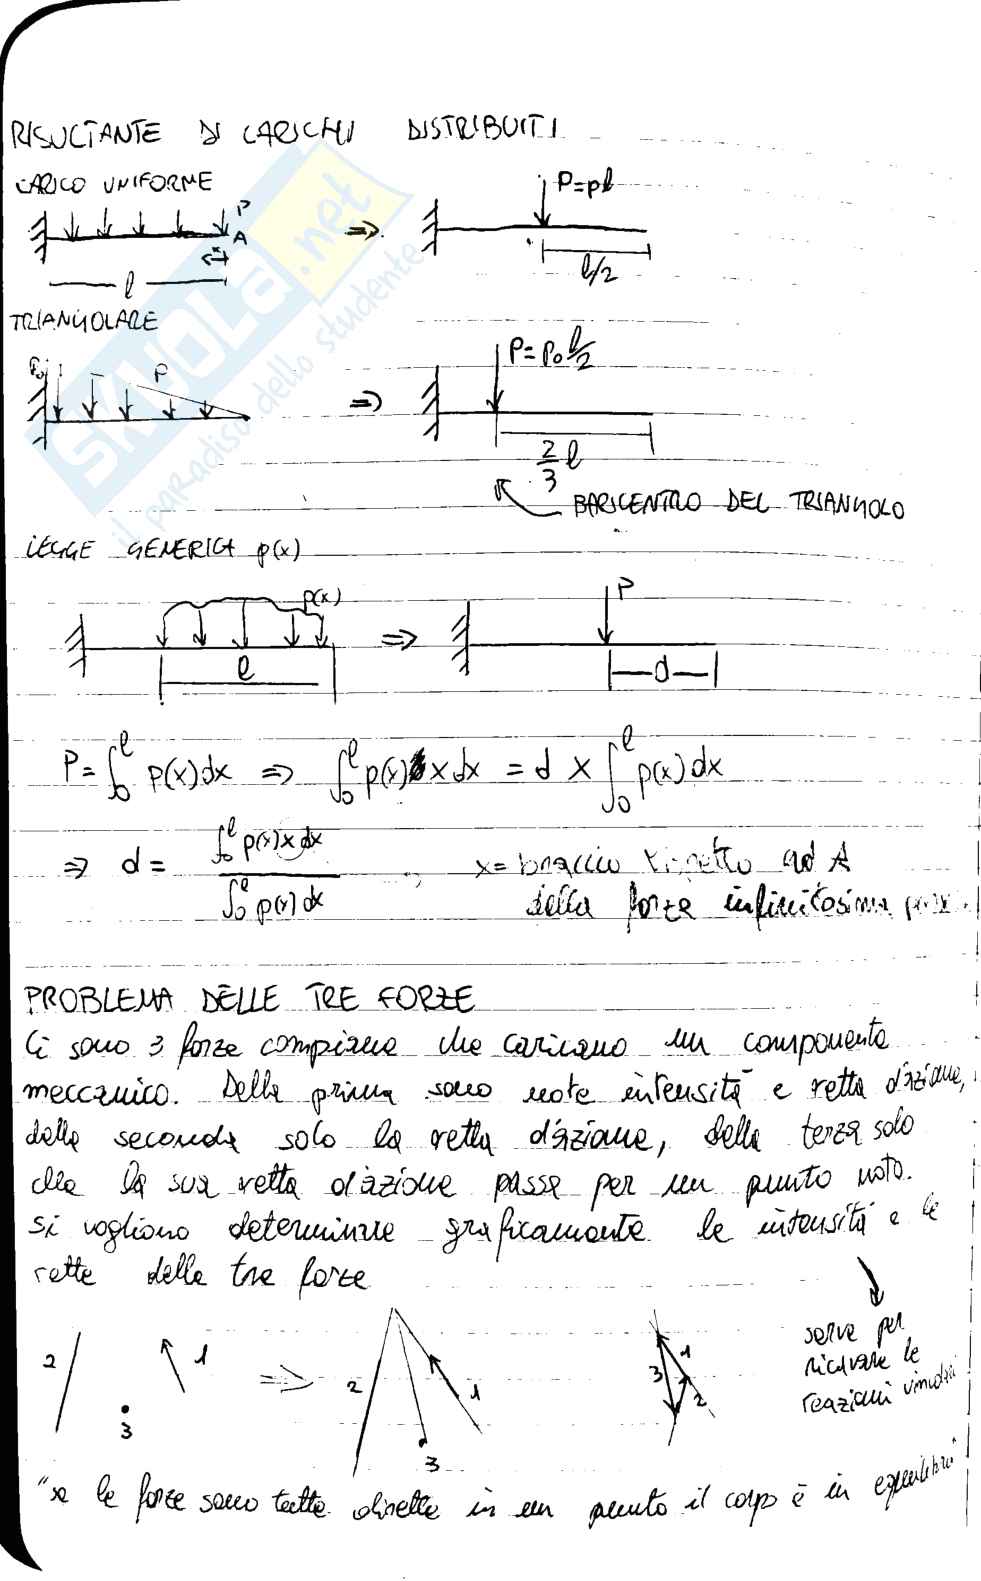 RISULTANTE DI CARICHI DISTRIBUITI
CARICO UNIFORME
P
A
x
l
⇒
P=pl
l/2
TRIANGOLARE
P₀
P
⇒
P=P₀ l/2
2/3 l
BARICENTRO DEL TRIANGOLO
LEGGE GENERICA p(x)
p(x)
l
⇒
P
d
P = ∫₀ˡ p(x)dx ⇒ ∫₀ˡ p(x) x dx = d × ∫₀ˡ p(x) dx
⇒ d = ∫₀ˡ p(x) x dx / ∫₀ˡ p(x) dx
x = braccio rispetto ad A
della forza infinitesima
PROBLEMA DELLE TRE FORZE
Ci sono 3 forze complanari che caricano un componente
meccanico. Della prima sono note intensità e retta d'azione,
della seconda solo la retta d'azione, della terza solo
che la sua retta d'azione passa per un punto noto.
si vogliono determinare graficamente le intensità e le
rette delle tre forze
serve per
ricavare le
reazioni vincolari
2
1
3
⇒
2
1
3
3
1
2
"se le forze sono tutte dirette in un punto il corpo è in equilibrio"
SKUOLA.net
il paradiso dello studente